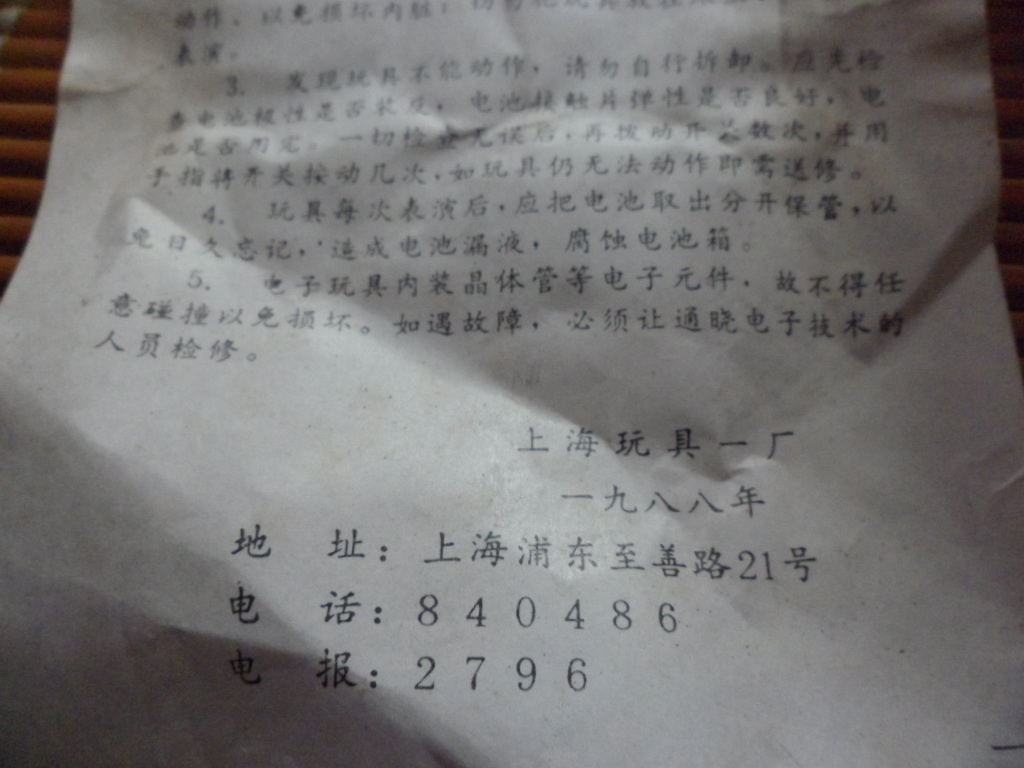 动作，以免损坏内脏；切勿把玩具放在
表演。
3． 发现玩具不能动作，请勿自行拆卸。应先检
查电池极性是否装反，电池接触片弹性是否良好，电
池是否用完。一切检查无误后，再拨动开关数次，并用
手指将开关按动几次，如玩具仍无法动作即需送修。
4． 玩具每次表演后，应把电池取出分开保管，以
免日久忘记，造成电池漏液，腐蚀电池箱。
5． 电子玩具内装晶体管等电子元件，故不得任
意碰撞以免损坏。如遇故障，必须让通晓电子技术的
人员检修。
上海玩具一厂
一九八八年
地 址：上海浦东至善路21号
电 话：840486
电 报：2796